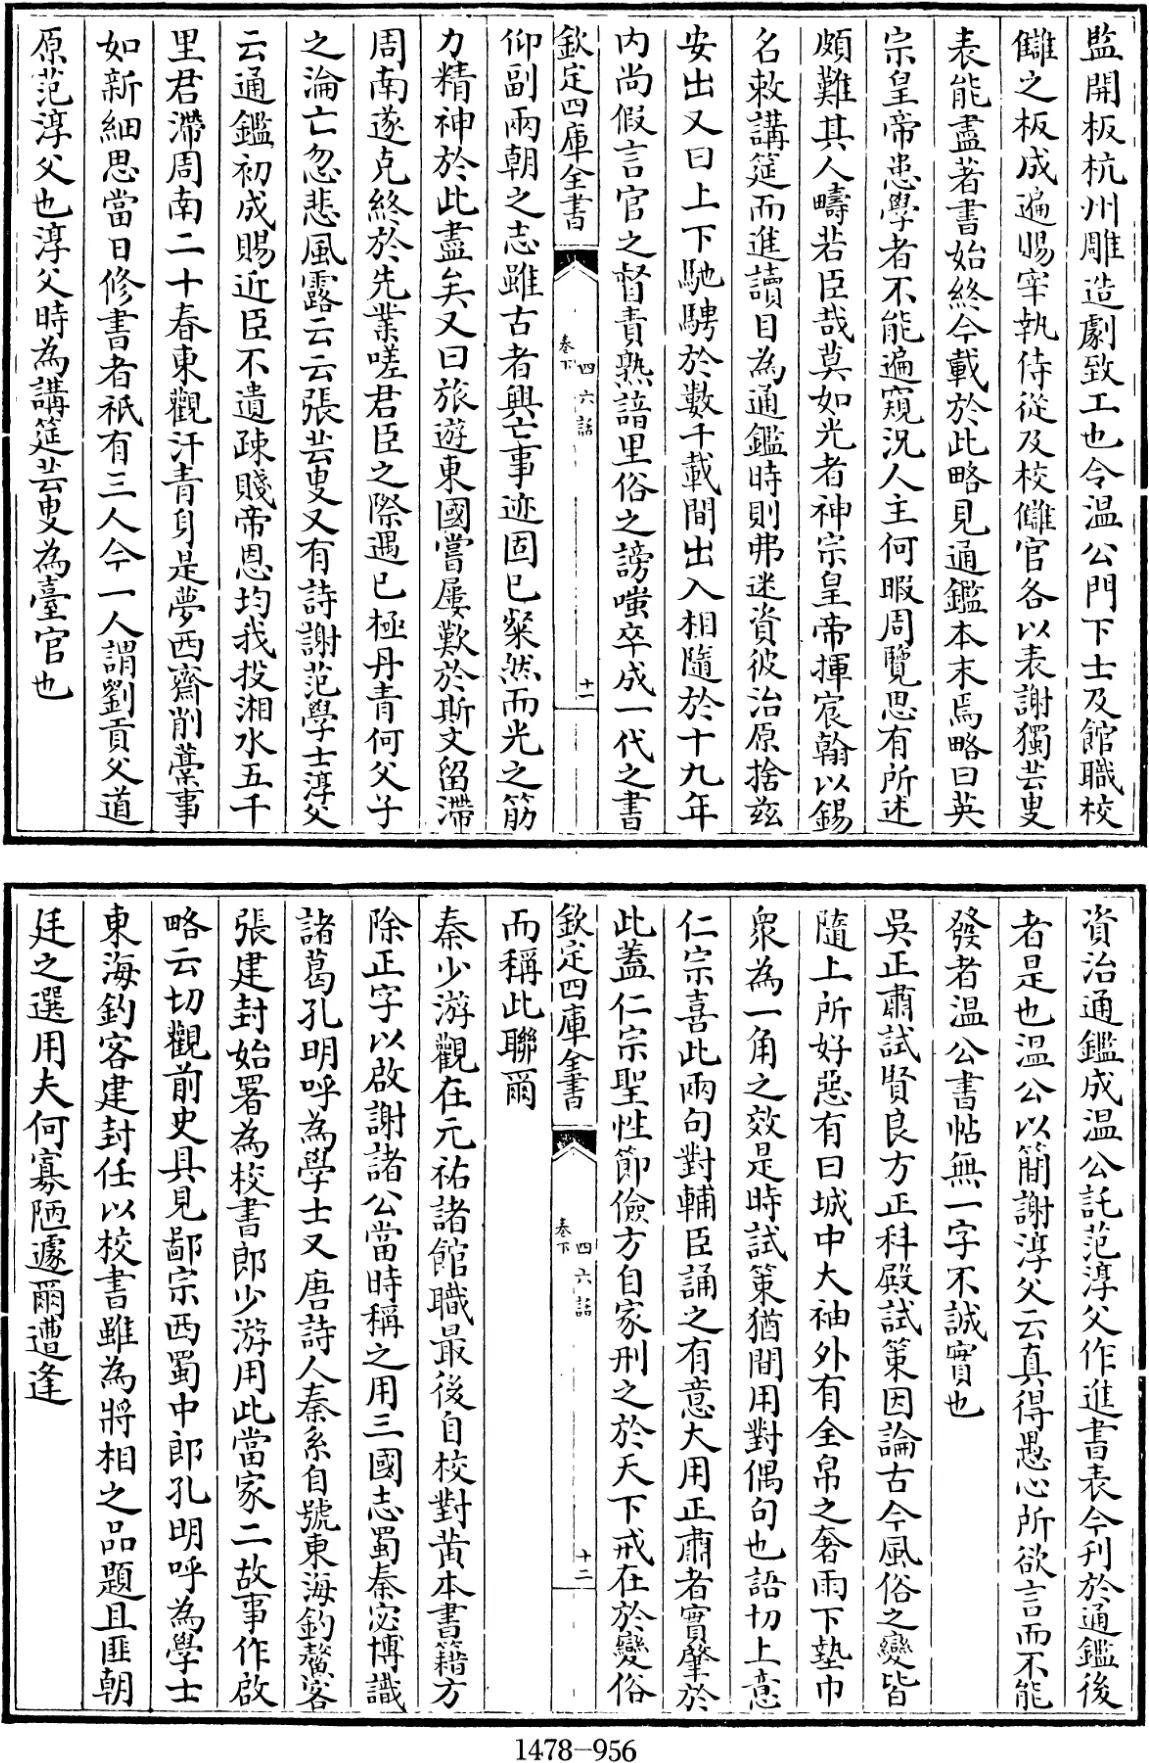 監開板杭州雕造劇致工也令温公門下士及館職校
讎之板成遍賜宰執侍從及校讎官各以表謝獨芸叟
表能盡著書始終今載於此略見通鑑本末焉略曰英
宗皇帝患學者不能遍窺況人主何暇周覽思有所述
頗難其人疇若臣哉莫如光者神宗皇帝揮宸翰以錫
名敕講筵而進讀目為通鑑時則弗迷資彼治原捨兹
安出又曰上下馳騁於數千載間出入相隨於十九年
内尚假言官之督責熟諳里俗之謗嗤卒成一代之書
欽定四庫全書
四六話
卷下
十一
仰副兩朝之志雖古者興亡事迹固已粲然而光之筋
力精神於此盡矣又曰旅遊東國嘗屢歎於斯文留滯
周南遂克終於先業嗟君臣之際遇已極丹青何父子
之淪亡忽悲風露云云張芸叟又有詩謝范學士淳父
云通鑑初成賜近臣不遺疎賤帝恩均我投湘水五千
里君滯周南二十春東觀汗青身是夢西齋削藁事
如新細思當日修書者祇有三人今一人謂劉貢父道
原范淳父也淳父時為講筵芸叟為臺官也
資治通鑑成温公託范淳父作進書表今刊於通鑑後
者是也温公以簡謝淳父云真得愚心所欲言而不能
發者温公書帖無一字不誠實也
吳正肅試賢良方正科殿試策因論古今風俗之變皆
隨上所好惡有曰城中大袖外有全帛之奢雨下墊巾
衆為一角之效是時試策猶間用對偶句也語切上意
仁宗喜此兩句對輔臣誦之有意大用正肅者實肇於
此蓋仁宗聖性節儉方自家刑之於天下戒在於變俗
欽定四庫全書
四六話
卷下
十二
而稱此聯爾
秦少游觀在元祐諸館職最後自校對黄本書籍方
除正字以啟謝諸公當時稱之用三國志蜀秦宓博識
諸葛孔明呼為學士又唐詩人秦系自號東海釣鼇客
張建封始署為校書郎少游用此當家二故事作啟
略云切觀前史具見鄙宗西蜀中郎孔明呼為學士
東海釣客建封任以校書雖為將相之品題且匪朝
廷之選用夫何寡陋遽爾遭逢
1478-956